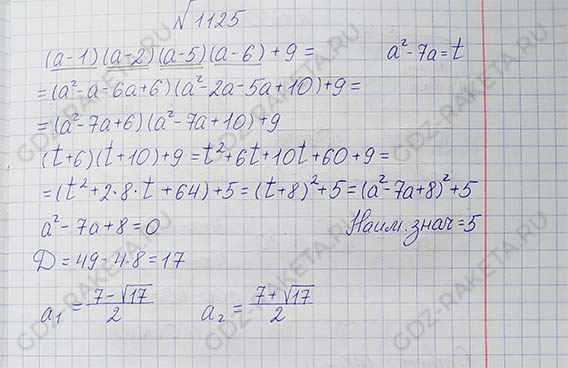 √1125
(a-1)(a-2)(a-5)(a-6)+9= a²-7a=t
=(a²-a-6a+6)(a²-2a-5a+10)+9=
=(a²-7a+6)(a²-7a+10)+9
(t+6)(t+10)+9=t²+6t+10t+60+9=
=(t²+2·8·t+64)+5=(t+8)²+5=(a²-7a+8)²+5
a²-7a+8=0 Наим. знач=5
D=49-4·8=17
a₁=(7-√17)/2 a₂=(7+√17)/2
GDZ-RAKETA.RU